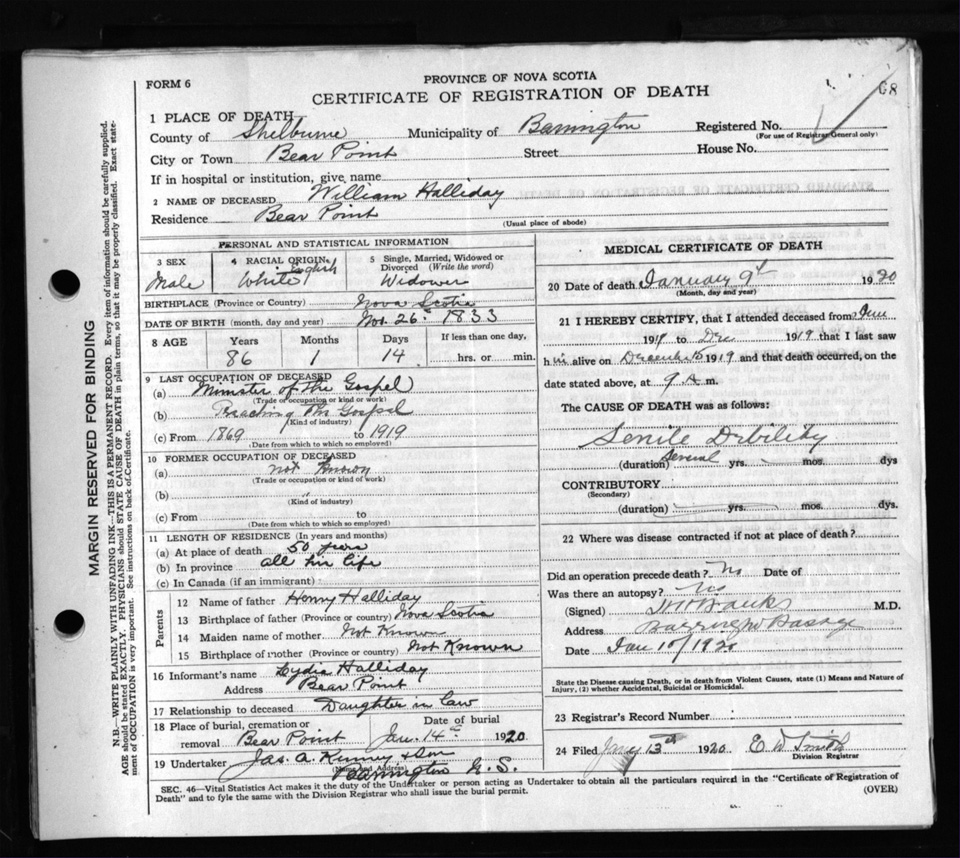 FORM 6
PROVINCE OF NOVA SCOTIA
CERTIFICATE OF REGISTRATION OF DEATH
68
1 PLACE OF DEATH
County of Shelburne Municipality of Barrington Registered No.
(For use of Registrar General only)
City or Town Bear Point Street House No.
If in hospital or institution, give name
2 NAME OF DECEASED William Halliday
Residence Bear Point
(Usual place of abode)
PERSONAL AND STATISTICAL INFORMATION
3 SEX Male
4 RACIAL ORIGIN White English
5 Single, Married, Widowed or Divorced (Write the word) Widower
BIRTHPLACE (Province or Country) Nova Scotia
DATE OF BIRTH (month, day and year) Nov. 26th 1833
8 AGE Years Months Days If less than one day,
86 1 14 hrs. or min.
9 LAST OCCUPATION OF DECEASED
(a) Minister of the Gospel
(Trade or occupation or kind of work)
(b) Preaching the Gospel
(Kind of industry)
(c) From 1869 to 1919
(Date from which to which so employed)
10 FORMER OCCUPATION OF DECEASED
(a) not known
(Trade or occupation or kind of work)
(b) "
(Kind of industry)
(c) From to
(Date from which to which so employed)
11 LENGTH OF RESIDENCE (In years and months)
(a) At place of death 50 years
(b) In province all his life
(c) In Canada (if an immigrant)
Parents
12 Name of father Henry Halliday
13 Birthplace of father (Province or country) Nova Scotia
14 Maiden name of mother Not Known
15 Birthplace of mother (Province or country) Not Known
16 Informant's name Lydia Halliday
Address Bear Point
17 Relationship to deceased Daughter in law
18 Place of burial, cremation or removal Bear Point Date of burial Jan. 14th 1920
19 Undertaker Jas. A. Kenney & Son
Barrington N. S.
MEDICAL CERTIFICATE OF DEATH
20 Date of death January 9th 1920
(Month, day and year)
21 I HEREBY CERTIFY, that I attended deceased from June
1919 to Dec 1919 that I last saw
him alive on December 15 1919 and that death occurred, on the
date stated above, at 9 A.m.
The CAUSE OF DEATH was as follows:
Senile Debility
(duration) Several yrs. mos. dys
CONTRIBUTORY
(Secondary)
(duration) yrs. mos. dys.
22 Where was disease contracted if not at place of death?
Did an operation precede death? No Date of
Was there an autopsy? No
(Signed) Banks M.D.
Address Barrington Passage
Date Jan 10/1920
State the Disease causing Death, or in death from Violent Causes, state (1) Means and Nature of
Injury, (2) whether Accidental, Suicidal or Homicidal.
23 Registrar's Record Number
24 Filed Jany 13th 1920 E W Smith
Division Registrar
SEC. 46—Vital Statistics Act makes it the duty of the Undertaker or person acting as Undertaker to obtain all the particulars required in the "Certificate of Registration of
Death" and to fyle the same with the Division Registrar who shall issue the burial permit.
(OVER)
MARGIN RESERVED FOR BINDING
N.B.—WRITE PLAINLY WITH UNFADING INK—THIS IS A PERMANENT RECORD. Every item of information should be carefully supplied.
AGE should be stated EXACTLY. PHYSICIANS should STATE CAUSE OF DEATH in plain terms, so that it may be properly classified. Exact state-
ment of OCCUPATION is very important. See instructions on back of Certificate.